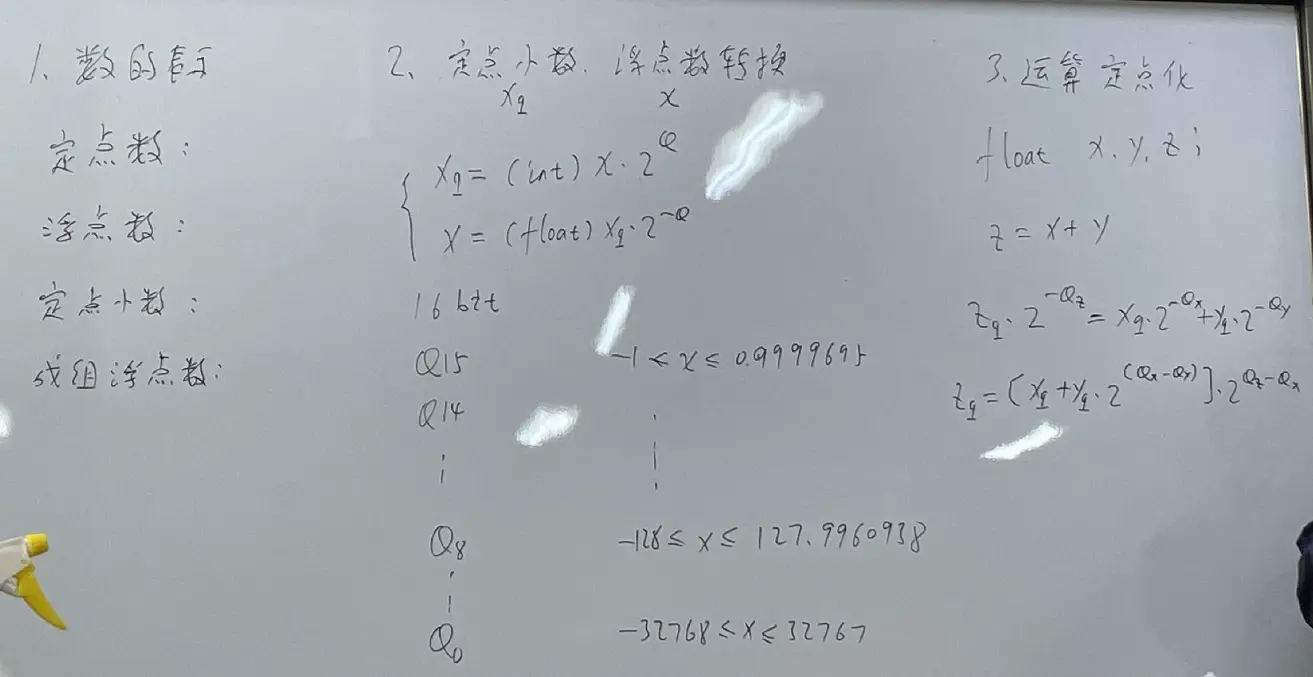 1、数的表示
定点数：
浮点数：
定点小数：
成组浮点数：
2、定点小数、浮点数转换
xq x
xq = (int) x · 2^Q
x = (float) xq · 2^-Q
16 bit
Q15 -1 ≤ x ≤ 0.9999695
Q14
Q8 -128 ≤ x ≤ 127.9960938
Q0 -32768 ≤ x ≤ 32767
3、运算定点化
float x, y, z ;
z = x + y
zq · 2^-Qz = xq · 2^-Qx + yq · 2^-Qy
zq = [xq + yq · 2^(Qx-Qy)] · 2^Qz-Qx